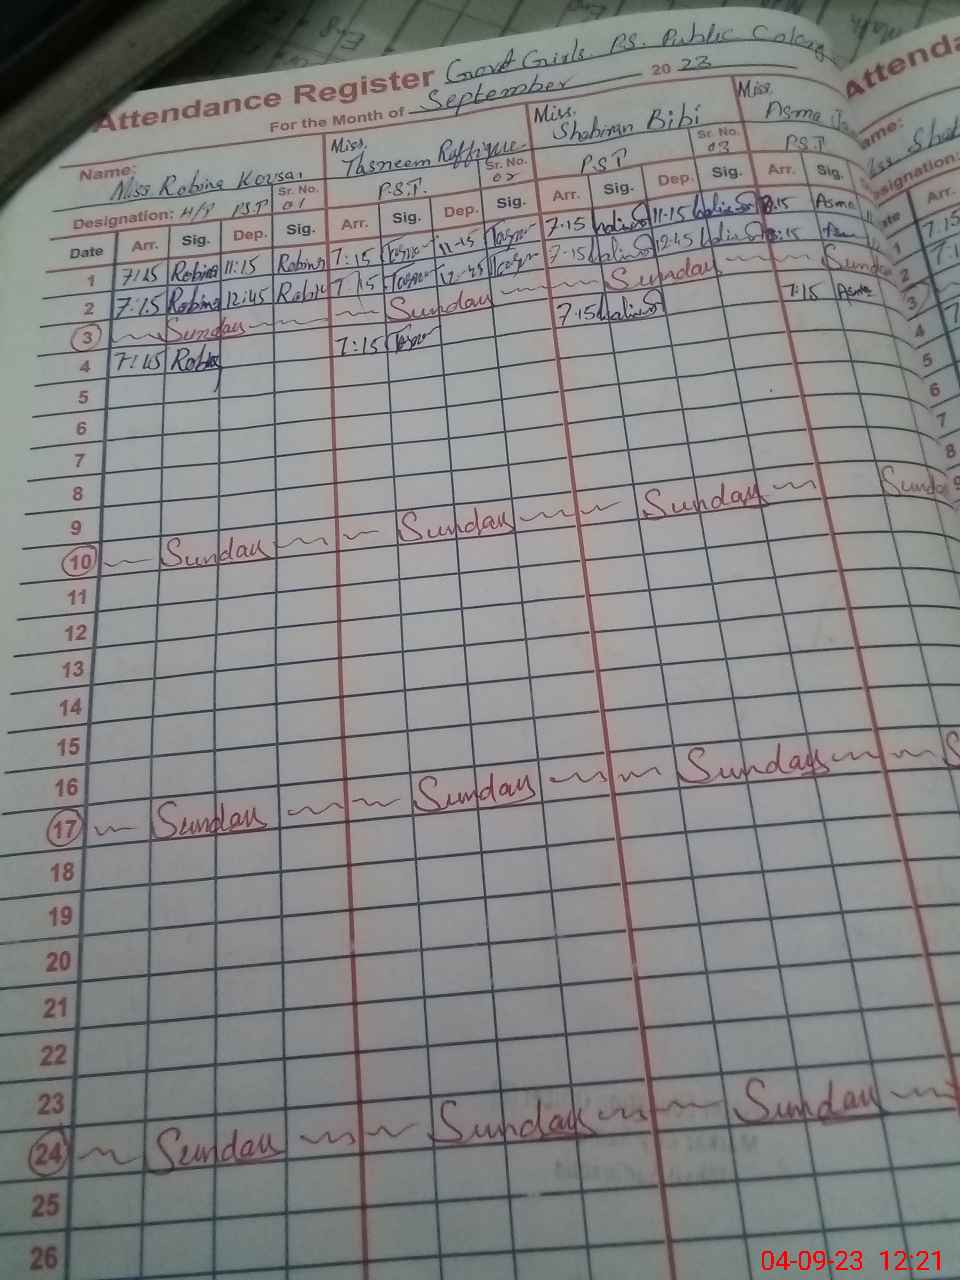 Attendance Register Govt Girls P.S. Public Colony
For the Month of September 2023
Name: Miss Robina Kousar Miss. Tasneem Raffique Miss. Shabiran Bibi Miss. Asma
Designation: H/T P.S.T Sr. No. 01 P.S.T. Sr. No. 02 P.S.T Sr. No. 03 P.S.T
Date Arr. Sig. Dep. Sig. Arr. Sig. Dep. Sig. Arr. Sig. Dep. Sig. Arr. Sig.
1 7:15 Robina 11:15 Robina 7:15 11-15 7·15 11-15 Asma
2 7:15 Robina 12:45 Robina 7:15 12-45 7·15 12:45
3 Sunday Sunday Sunday Sunday
4 7:15 Robina 7:15 7·15 7:15 Asma
5
6
7
8
9
10 Sunday Sunday Sunday Sunday
11
12
13
14
15
16
17 Sunday Sunday Sunday S
18
19
20
21
22
23
24 Sunday Sunday Sunday
25
26
Attenda
ame:
esignation:
Arr.
1
2
3
4
5
6
7
8
9
04-09-23 12:21